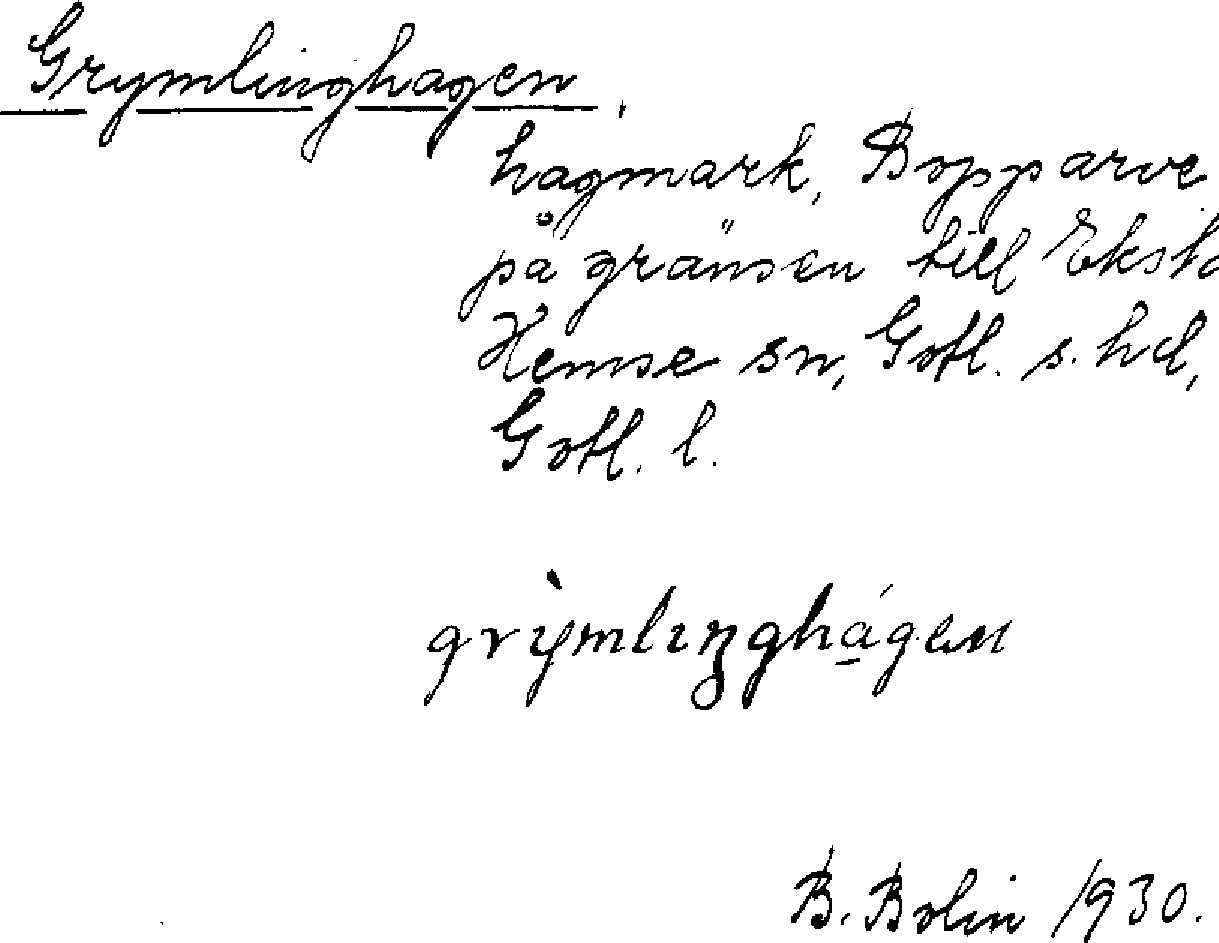 Grymlinghagen,
hagmark, Bopparve
på gränsen till Eksta
Hemse sn, Gotl. s. hd,
Gotl. l.
grỳmlıŋghá̱gen
B. Bolin 1930.